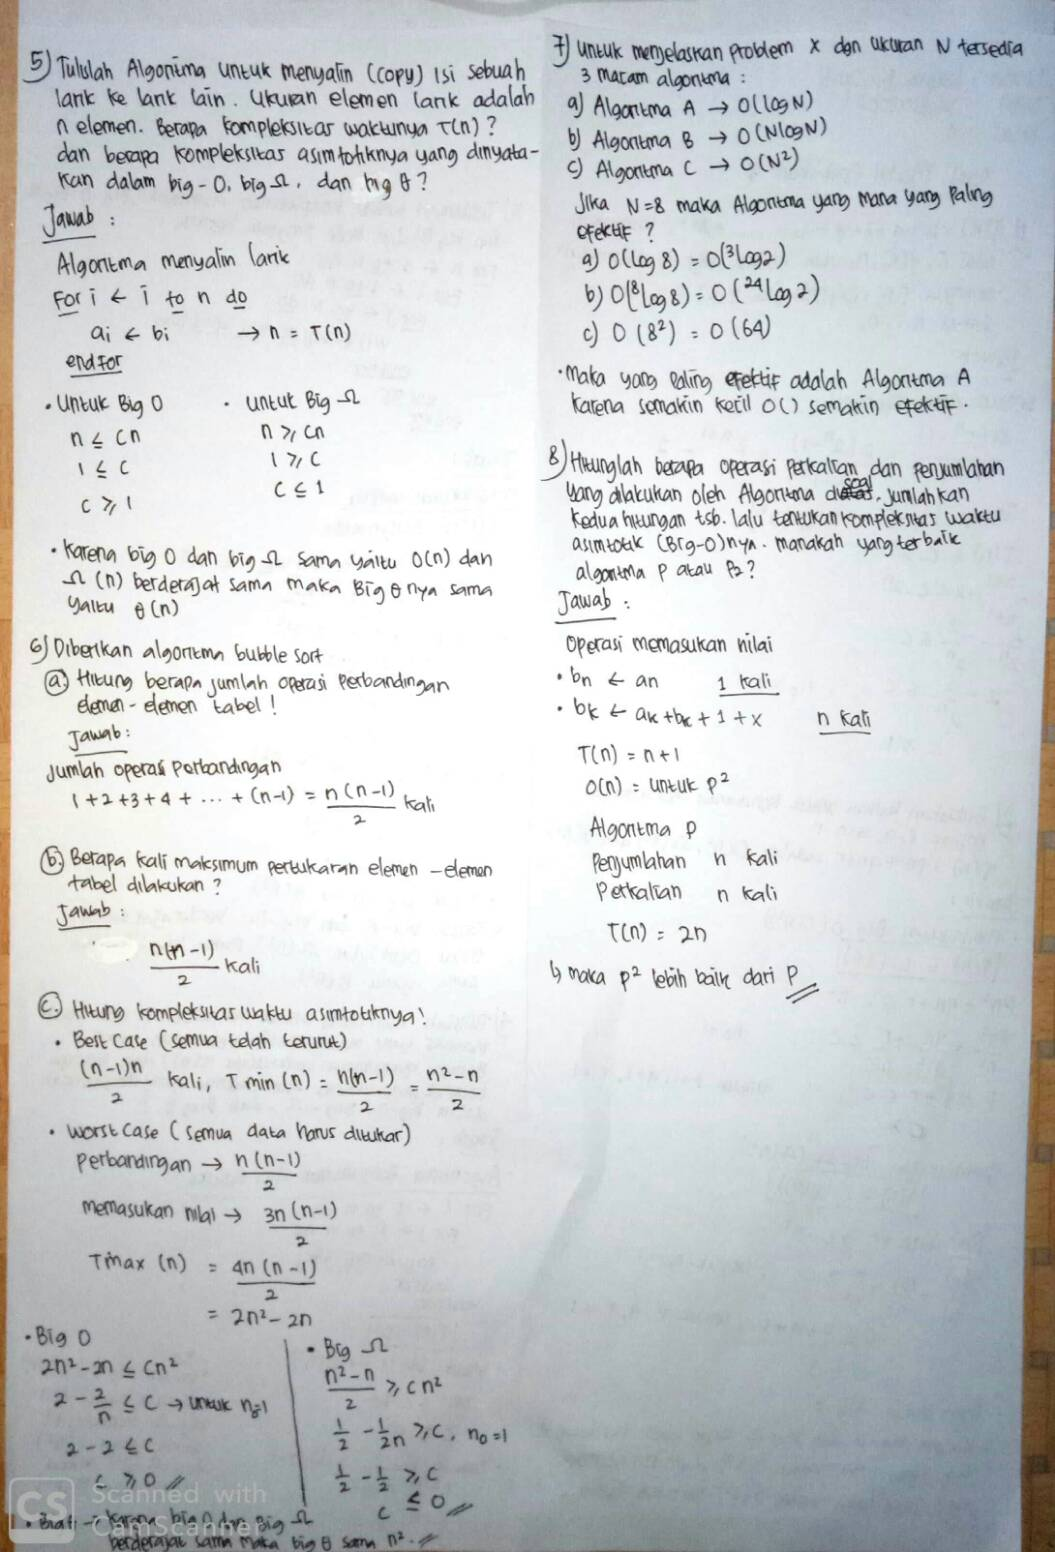 5) Tulislah Algoritma untuk menyalin (copy) isi sebuah
larik ke larik lain. Ukuran elemen larik adalah
n elemen. Berapa kompleksitas waktunya T(n) ?
dan berapa kompleksitas asimtotiknya yang dinyata-
kan dalam big-O, big Ω, dan big θ ?
Jawab :
Algoritma menyalin larik
For i ← 1 to n do
ai ← bi → n = T(n)
end for
• Untuk Big O
n ≤ cn
1 ≤ c
c ≥ 1
• Untuk Big Ω
n ≥ cn
1 ≥ c
c ≤ 1
• Karena big O dan big Ω sama yaitu O(n) dan
Ω (n) berderajat sama maka Big θ nya sama
yaitu θ (n)
6) Diberikan algoritma bubble sort
(a) Hitung berapa jumlah operasi perbandingan
elemen - elemen tabel !
Jawab :
Jumlah operasi perbandingan
1+2+3+4+ ... + (n-1) = n(n-1)/2 kali
(b.) Berapa kali maksimum pertukaran elemen - elemen
tabel dilakukan ?
Jawab :
n(n-1)/2 kali
(c.) Hitung kompleksitas waktu asimtotiknya !
• Best Case (semua telah terurut)
(n-1)n/2 kali, T min (n) = n(n-1)/2 = n²-n/2
• Worst Case ( semua data harus ditukar)
Perbandingan → n(n-1)/2
memasukan nilai → 3n(n-1)/2
Tmax (n) = 4n(n-1)/2
= 2n² - 2n
• Big O
2n² - 2n ≤ Cn²
2 - 2/n ≤ C → untuk n₀=1
2 - 2 ≤ C
c ≥ 0 //
• Big Ω
n²-n/2 ≥ cn²
1/2 - 1/2n ≥ C, n₀=1
1/2 - 1/2 ≥ C
C ≤ 0 //
Karena big O dan Big Ω
berderajat sama maka big θ sama n². //
7) Untuk menjelaskan problem X dgn ukuran N tersedia
3 macam algoritma :
a) Algoritma A → O(log N)
b) Algoritma B → O(N log N)
c) Algoritma C → O(N²)
Jika N=8 maka Algoritma yang mana yang paling
efektif ?
a) O(log 8) = O(³log2)
b) O(⁸log 8) = O(²⁴log 2)
c) O (8²) = O(64)
• Maka yang paling efektif adalah Algoritma A
karena semakin kecil O() semakin efektif.
8) Hitunglah berapa operasi perkalian dan penjumlahan
yang dilakukan oleh Algoritma soal. Jumlahkan
kedua hitungan tsb. lalu tentukan kompleksitas waktu
asimtotik (Big-O)nya. manakah yang terbaik
algoritma P atau P2 ?
Jawab :
Operasi memasukan nilai
• bn ← an 1 kali
• bk ← ak + bk + 1 + x n kali
T(n) = n+1
O(n) = untuk p²
Algoritma p
Penjumlahan n kali
Perkalian n kali
T(n) = 2n
↳ maka p² lebih baik dari P //
CS Scanned with
CamScanner